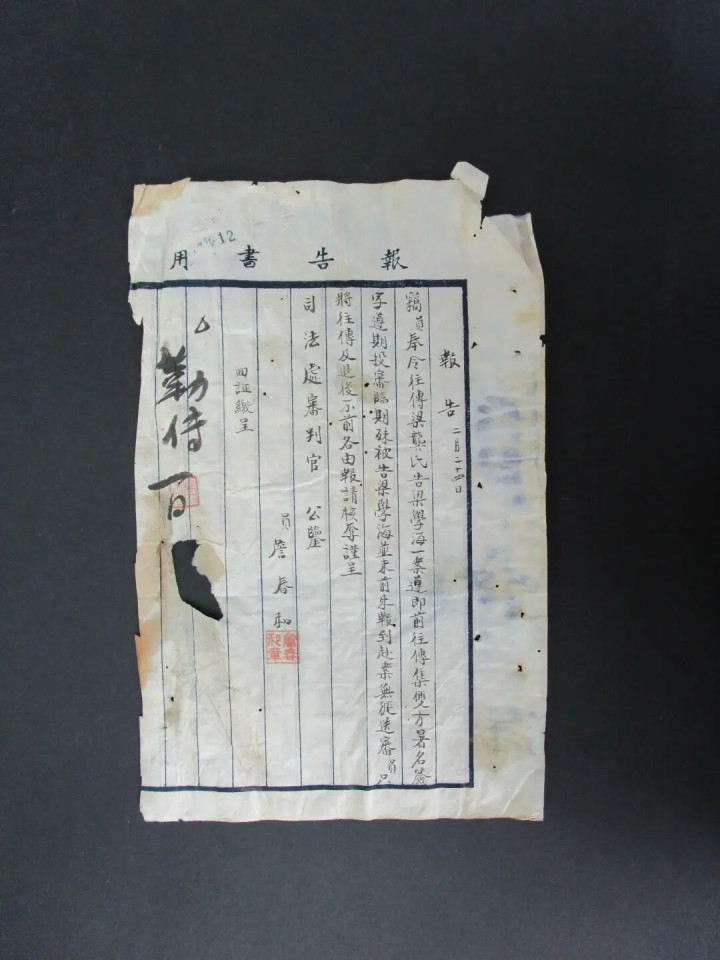 報告書用
12
報告 二月二十四日
竊員奉令往傳梁龔氏告梁學海一案遵即前往傳集雙方署名簽
字遵期投審臨期殊被告梁學海並未前來報到赴案無從送審員只
將往傳及退後不前各由報請核奪謹呈
司法處審判官 公鑒
員 詹春和
詹春和章
回証繳呈
勒傳